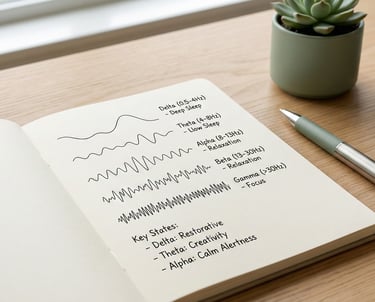 Delta (0.5-4Hz)
- Deep Sleep
Theta (4-8Hz)
- Low Sleep
Alpha (8-13Hz)
- Relaxation
Beta (13-30Hz)
- Relaxation
Gamma (>30Hz)
- Focus
Key States:
- Delta: Restorative
- Theta: Creativity
- Alpha: Calm Alertness